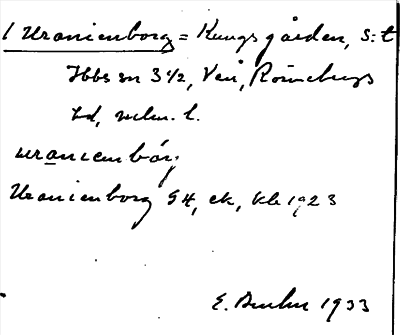 1 Uranienborg = Kungsgården, S:t
Ibbs sn 3 1/2, Ven, Rönnebergs
hd, mlm. l.
uraniembórj
Uranienborg GH, ek, kb 1923
E. 1933